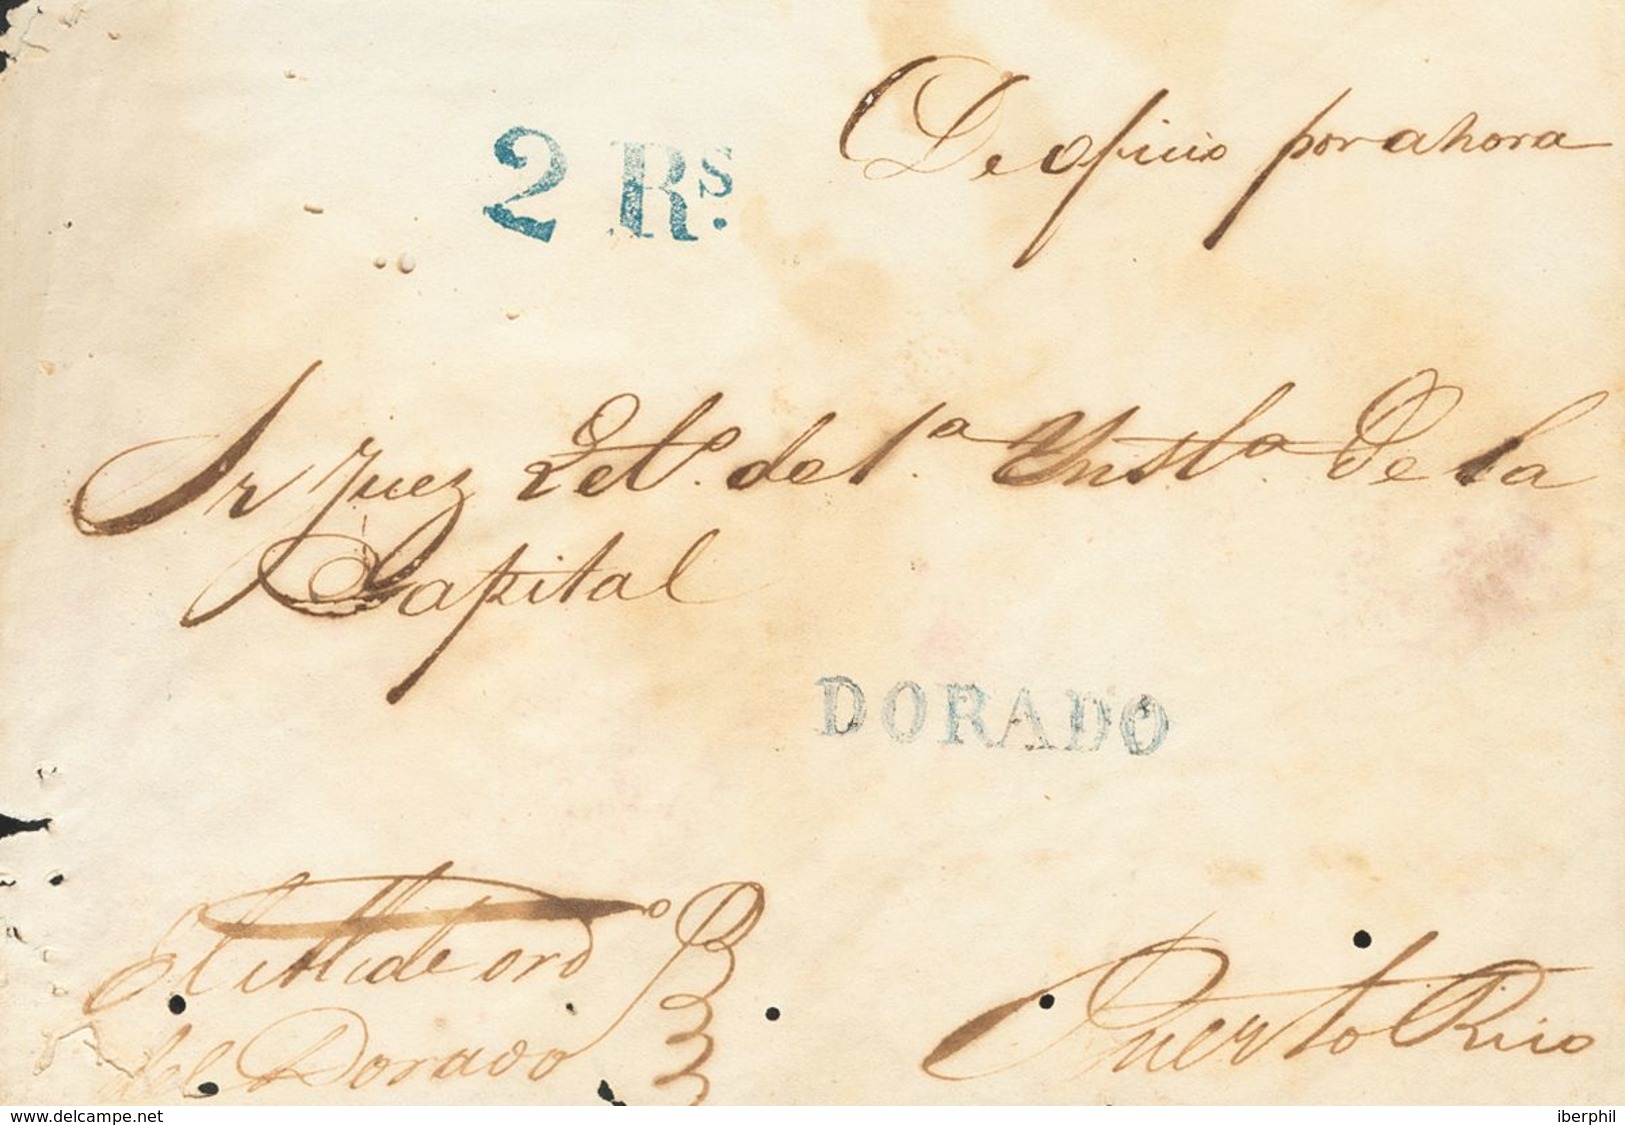 De oficio por ahora
2 Rs.
Sr Juez Let.o de 1.a Inst.a De la
Capital
DORADO
El Alcde ord.o
del Dorado
Puerto Rico
www.delcampe.net
iberphil